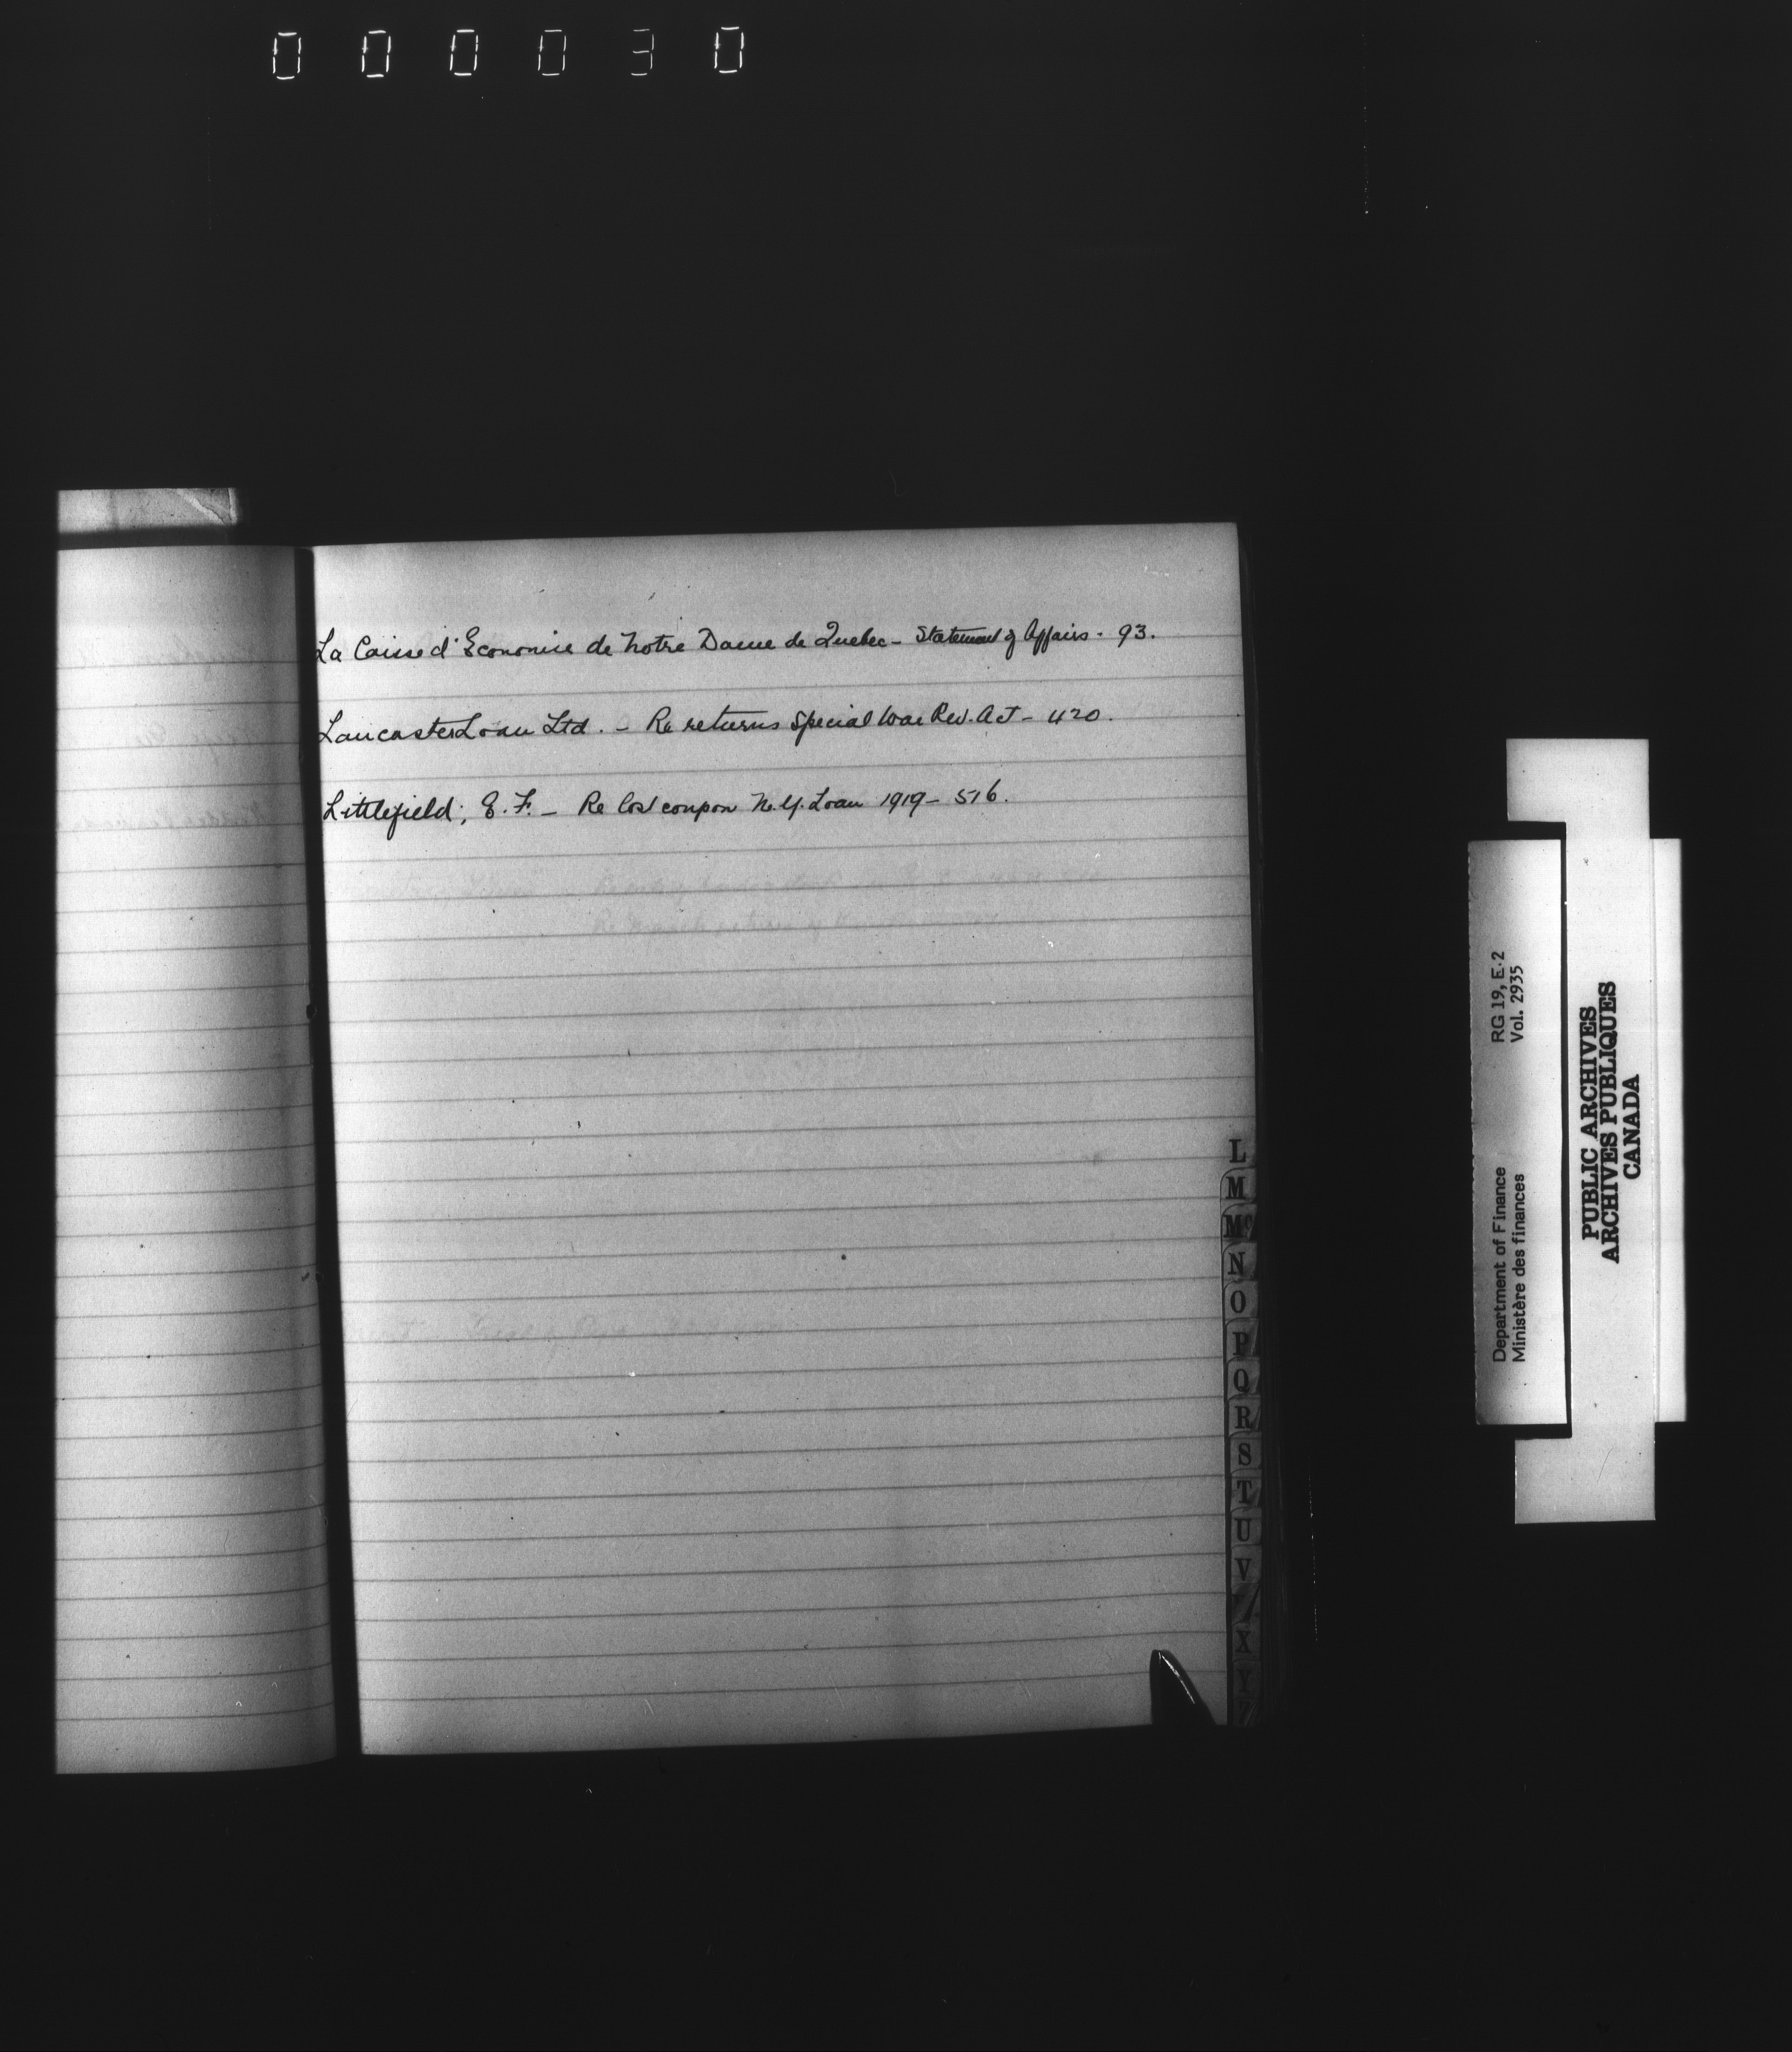 000030
La Caisse d'Economie de Notre Dame de Quebec - Statement of Affairs - 93.
Lancaster Loan Ltd. - Re returns Special War Rev. Act - 420.
Littlefield, E. F. - Re lost coupon N.Y. Loan 1919 - 516.
L
M
Mc
N
O
P
Q
R
S
T
U
V
X
Y
Z
Department of Finance RG 19, E-2
Ministère des finances Vol. 2935
PUBLIC ARCHIVES
ARCHIVES PUBLIQUES
CANADA